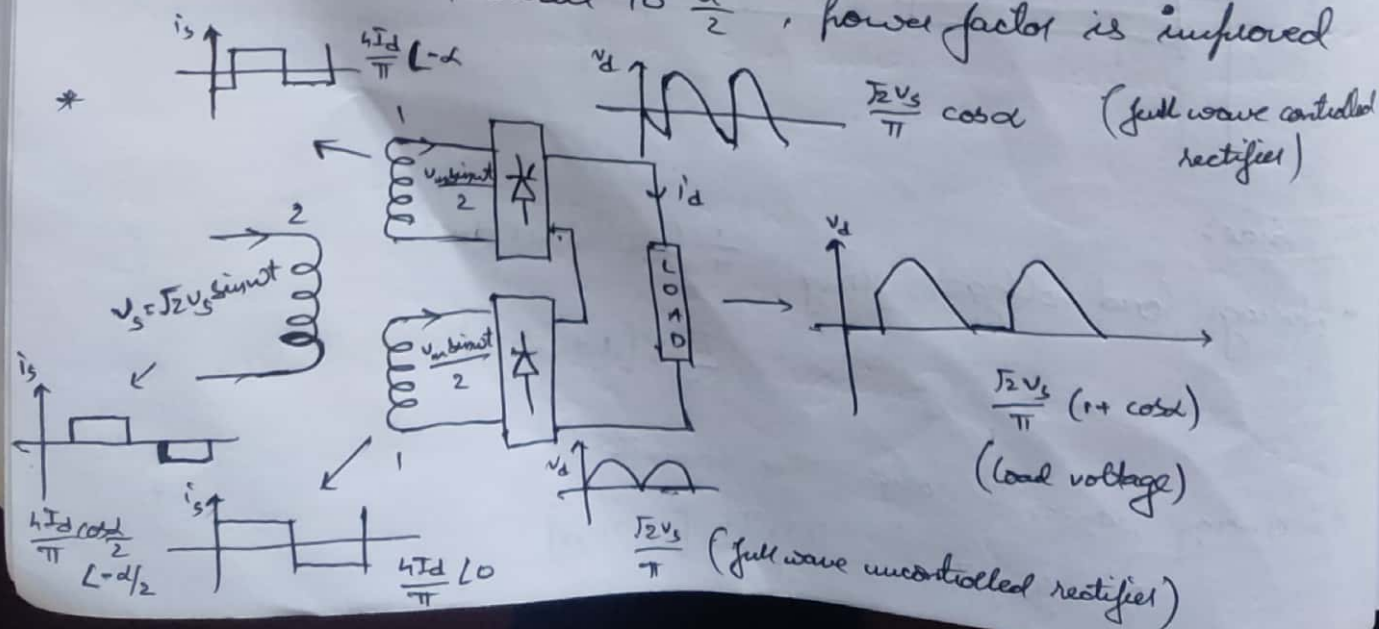 10 α/2 , power factor is improved
*
is
4Id/π ∠-α
vd
√2 vs/π cosα (full wave controlled
rectifier)
1
vm sinωt/2
id
2
vs = √2 vs sinωt
LOAD
vd
vm sinωt/2
√2 vs/π (1+ cosα)
(load voltage)
is
1
vd
is
4Id/π cosα/2
∠-α/2
4Id/π ∠0
√2 vs/π (full wave uncontrolled rectifier)